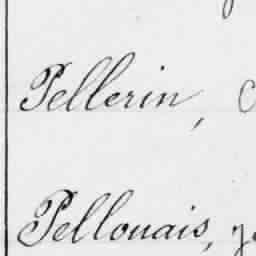 Pellerin,
Pellouais,